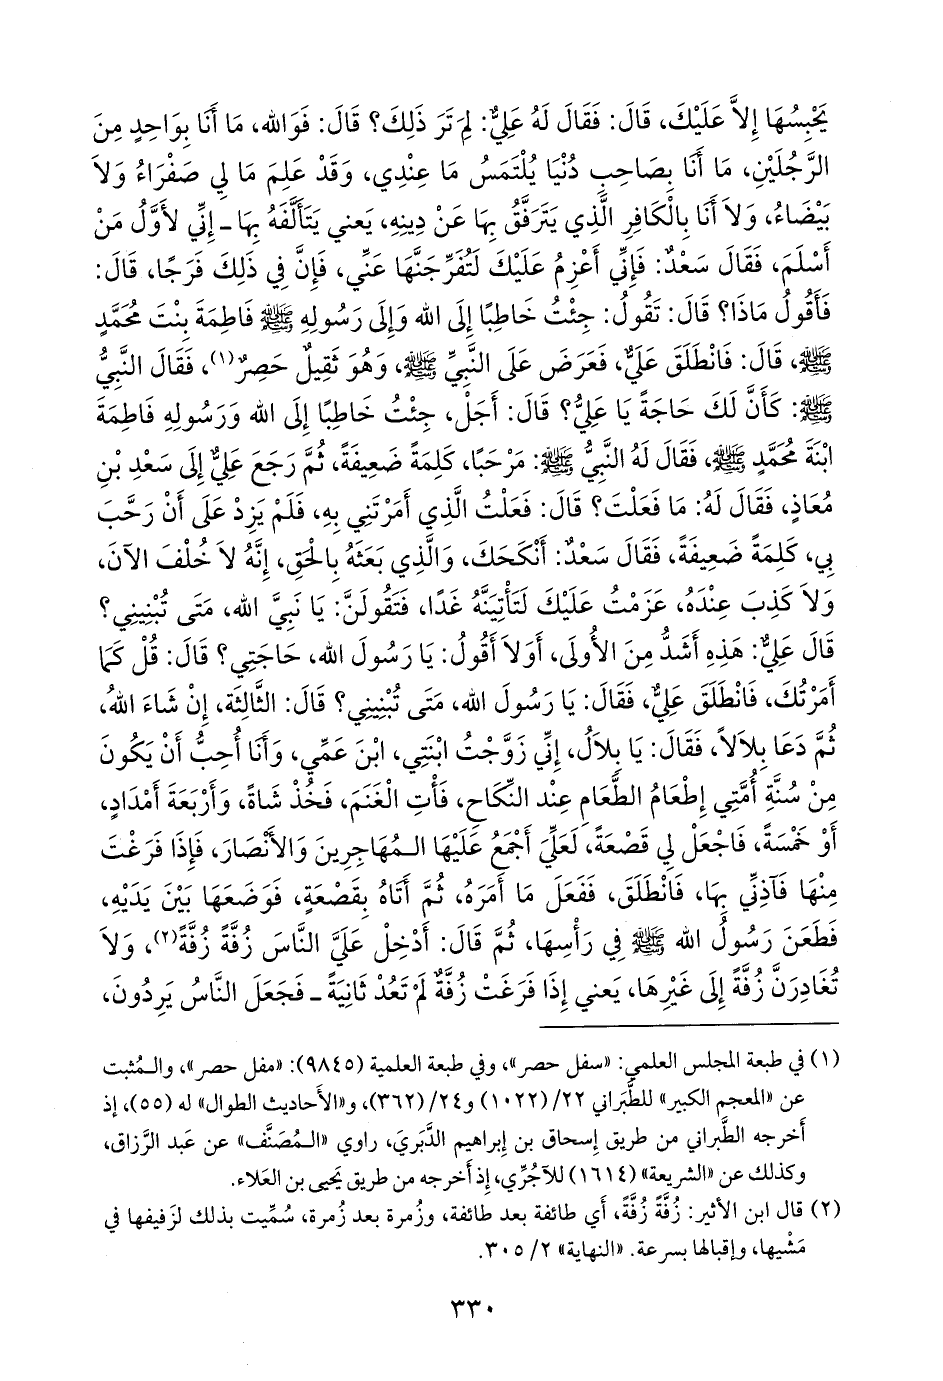 يَحْبِسُهَا إِلاَّ عَلَيْكَ، قَالَ: فَقَالَ لَهُ عَلِيٌّ: لِمَ تَرَ ذَلِكَ؟ قَالَ: فَوَالله، مَا أَنَا بِوَاحِدٍ مِنَ
الرَّجُلَيْنِ، مَا أَنَا بِصَاحِبِ دُنْيَا يُلْتَمَسُ مَا عِنْدِي، وَقَدْ عَلِمَ مَا لِي صَفْرَاءُ وَلاَ
بَيْضَاءُ، وَلاَ أَنَا بِالْكَافِرِ الَّذِي يَتَرَفَّقُ بِهَا عَنْ دِينِهِ، يَعني يَتَأَلَّفَهُ بِهَا ـ إِنِّي لأَوَّلُ مَنْ
أَسْلَمَ، فَقَالَ سَعْدٌ: فَإِنِّي أَعْزِمُ عَلَيْكَ لَتُفَرِّجَنَّهَا عَنِّي، فَإِنَّ فِي ذَلِكَ فَرَجًا، قَالَ:
فَأَقُولُ مَاذَا؟ قَالَ: تَقُولُ: جِئْتُ خَاطِبًا إِلَى الله وَإِلَى رَسُولِهِ ﷺ فَاطِمَةَ بِنْتَ مُحَمَّدٍ
ﷺ، قَالَ: فَانْطَلَقَ عَلِيٌّ، فَعَرَضَ عَلَى النَّبِيِّ ﷺ، وَهُوَ ثَقِيلٌ حَصِرٌ(١)، فَقَالَ النَّبِيُّ
ﷺ: كَأَنَّ لَكَ حَاجَةً يَا عَلِيُّ؟ قَالَ: أَجَلْ، جِئْتُ خَاطِبًا إِلَى الله وَرَسُولِهِ فَاطِمَةَ
ابْنَةَ مُحَمَّدٍ ﷺ، فَقَالَ لَهُ النَّبِيُّ ﷺ: مَرْحَبًا، كَلِمَةً ضَعِيفَةً، ثُمَّ رَجَعَ عَلِيٌّ إِلَى سَعْدِ بْنِ
مُعَاذٍ، فَقَالَ لَهُ: مَا فَعَلْتَ؟ قَالَ: فَعَلْتُ الَّذِي أَمَرْتَنِي بِهِ، فَلَمْ يَزِدْ عَلَى أَنْ رَحَّبَ
بِي، كَلِمَةً ضَعِيفَةً، فَقَالَ سَعْدٌ: أَنْكَحَكَ، وَالَّذِي بَعَثَهُ بِالْحَقِ، إِنَّهُ لاَ خُلْفَ الآنَ،
وَلاَ كَذِبَ عِنْدَهُ، عَزَمْتُ عَلَيْكَ لَتَأْتِيَنَّهُ غَدًا، فَتَقُولَنَّ: يَا نَبِيَّ الله، مَتَى تُبْنِينِي؟
قَالَ عَلِيٌّ: هَذِهِ أَشَدُّ مِنَ الأُولَى، أَوَلاَ أَقُولُ: يَا رَسُولَ الله، حَاجَتِي؟ قَالَ: قُلْ كَمَا
أَمَرْتُكَ، فَانْطَلَقَ عَلِيٌّ، فَقَالَ: يَا رَسُولَ الله، مَتَى تُبْنِينِي؟ قَالَ: الثَّالِثَة، إِنْ شَاءَ اللهُ،
ثُمَّ دَعَا بِلاَلاً، فَقَالَ: يَا بِلاَلُ، إِنِّي زَوَّجْتُ ابْنَتِي، ابْنَ عَمِّي، وَأَنَا أُحِبُّ أَنْ يَكُونَ
مِنْ سُنَّةِ أُمَّتِي إِطْعَامُ الطَّعَامِ عِنْد النِّكَاحِ، فَأْتِ الْغَنَمَ، فَخُذْ شَاةً، وَأَرْبَعَةَ أَمْدَادٍ،
أَوْ خَمْسَةً، فَاجْعَلْ لِي قَصْعَةً، لَعَلِّيَ أَجْمَعُ عَلَيْهَا الـمُهَاجِرِينَ وَالأَنْصَارَ، فَإِذَا فَرَغْتَ
مِنْهَا فَآذِنِّي بِهَا، فَانْطَلَقَ، فَفَعَلَ مَا أَمَرَهُ، ثُمَّ أَتَاهُ بِقَصْعَةٍ، فَوَضَعَهَا بَيْنَ يَدَيْهِ،
فَطَعَنَ رَسُولُ الله ﷺ فِي رَأْسِهَا، ثُمَّ قَالَ: أَدْخِلْ عَلَيَّ النَّاسَ زُفَّةً زُفَّةً(٢)، وَلاَ
تُغَادِرَنَّ زُفَّةً إِلَى غَيْرِهَا، يَعني إِذَا فَرَغَتْ زُفَّةٌ لَمْ تَعُدْ ثَانِيَةً ـ فَجَعَلَ النَّاسُ يَرِدُونَ،
(١) في طبعة المجلس العلمي: «سفل حصر»، وفي طبعة العلمية (٩٨٤٥): «مفل حصر»، والـمُثبت
عن «المعجم الكبير» للطَّبَراني ٢٢/ (١٠٢٢) و٢٤/ (٣٦٢)، و«الأحاديث الطوال» له (٥٥)، إذ
أخرجه الطَّبراني من طريق إسحاق بن إبراهيم الدَّبَري، راوي «الـمُصَنَّف» عن عبد الرَّزاق،
وكذلك عن «الشريعة» (١٦١٤) للآجُرِّي، إذ أخرجه من طريق يَحيى بن العَلاء.
(٢) قال ابن الأثير: زُفَّةً زُفَّةً، أي طائفة بعد طائفة، وزُمرة بعد زُمرة، سُمِّيت بذلك لزَفيفها في
مَشْيها، وإقبالها بسرعة. «النهاية» ٢/ ٣٠٥.
٣٣٠